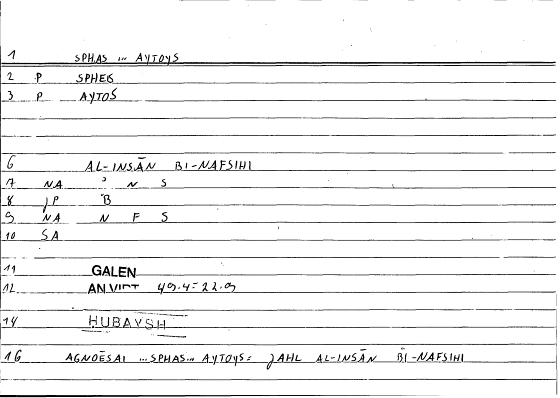 1 SPHAS ... AYTOYS
2 P SPHEIS
3 P AYTOS
6 AL-INSĀN BI-NAFSIHI
7 NA ʾ N S
8 JP B
9 NA N F S
10 SA
11 GALEN
12 AN.VIRT 49.4=22.9
14 HUBAYSH
16 AGNOĒSAI ...SPHAS... AYTOYS= JAHL AL-INSĀN BI-NAFSIHI